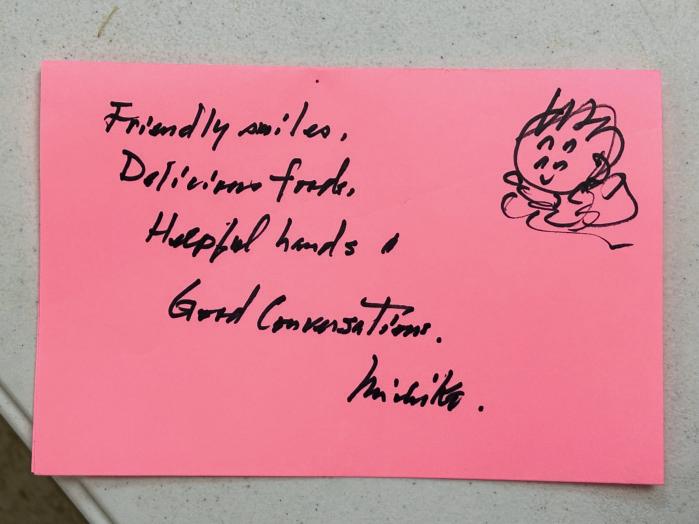 Friendly smiles,
Delicious foods,
Helpful hands,
Good Conversations.
Michiko.